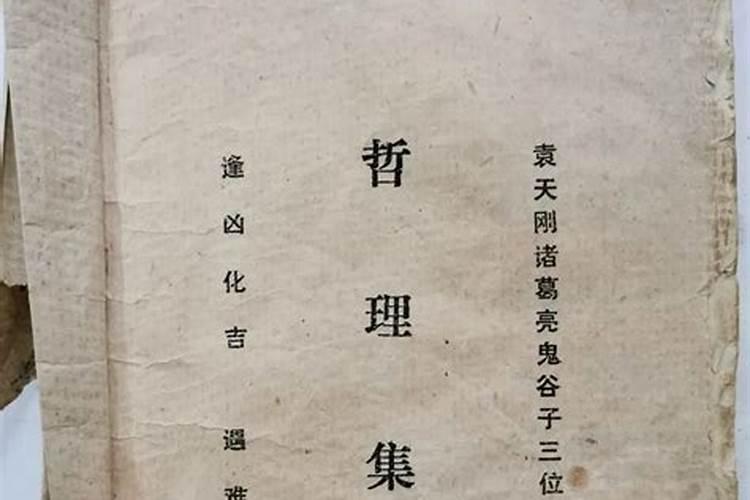 袁天刚诸葛亮鬼谷子三位
哲理集
逢凶化吉 遇难